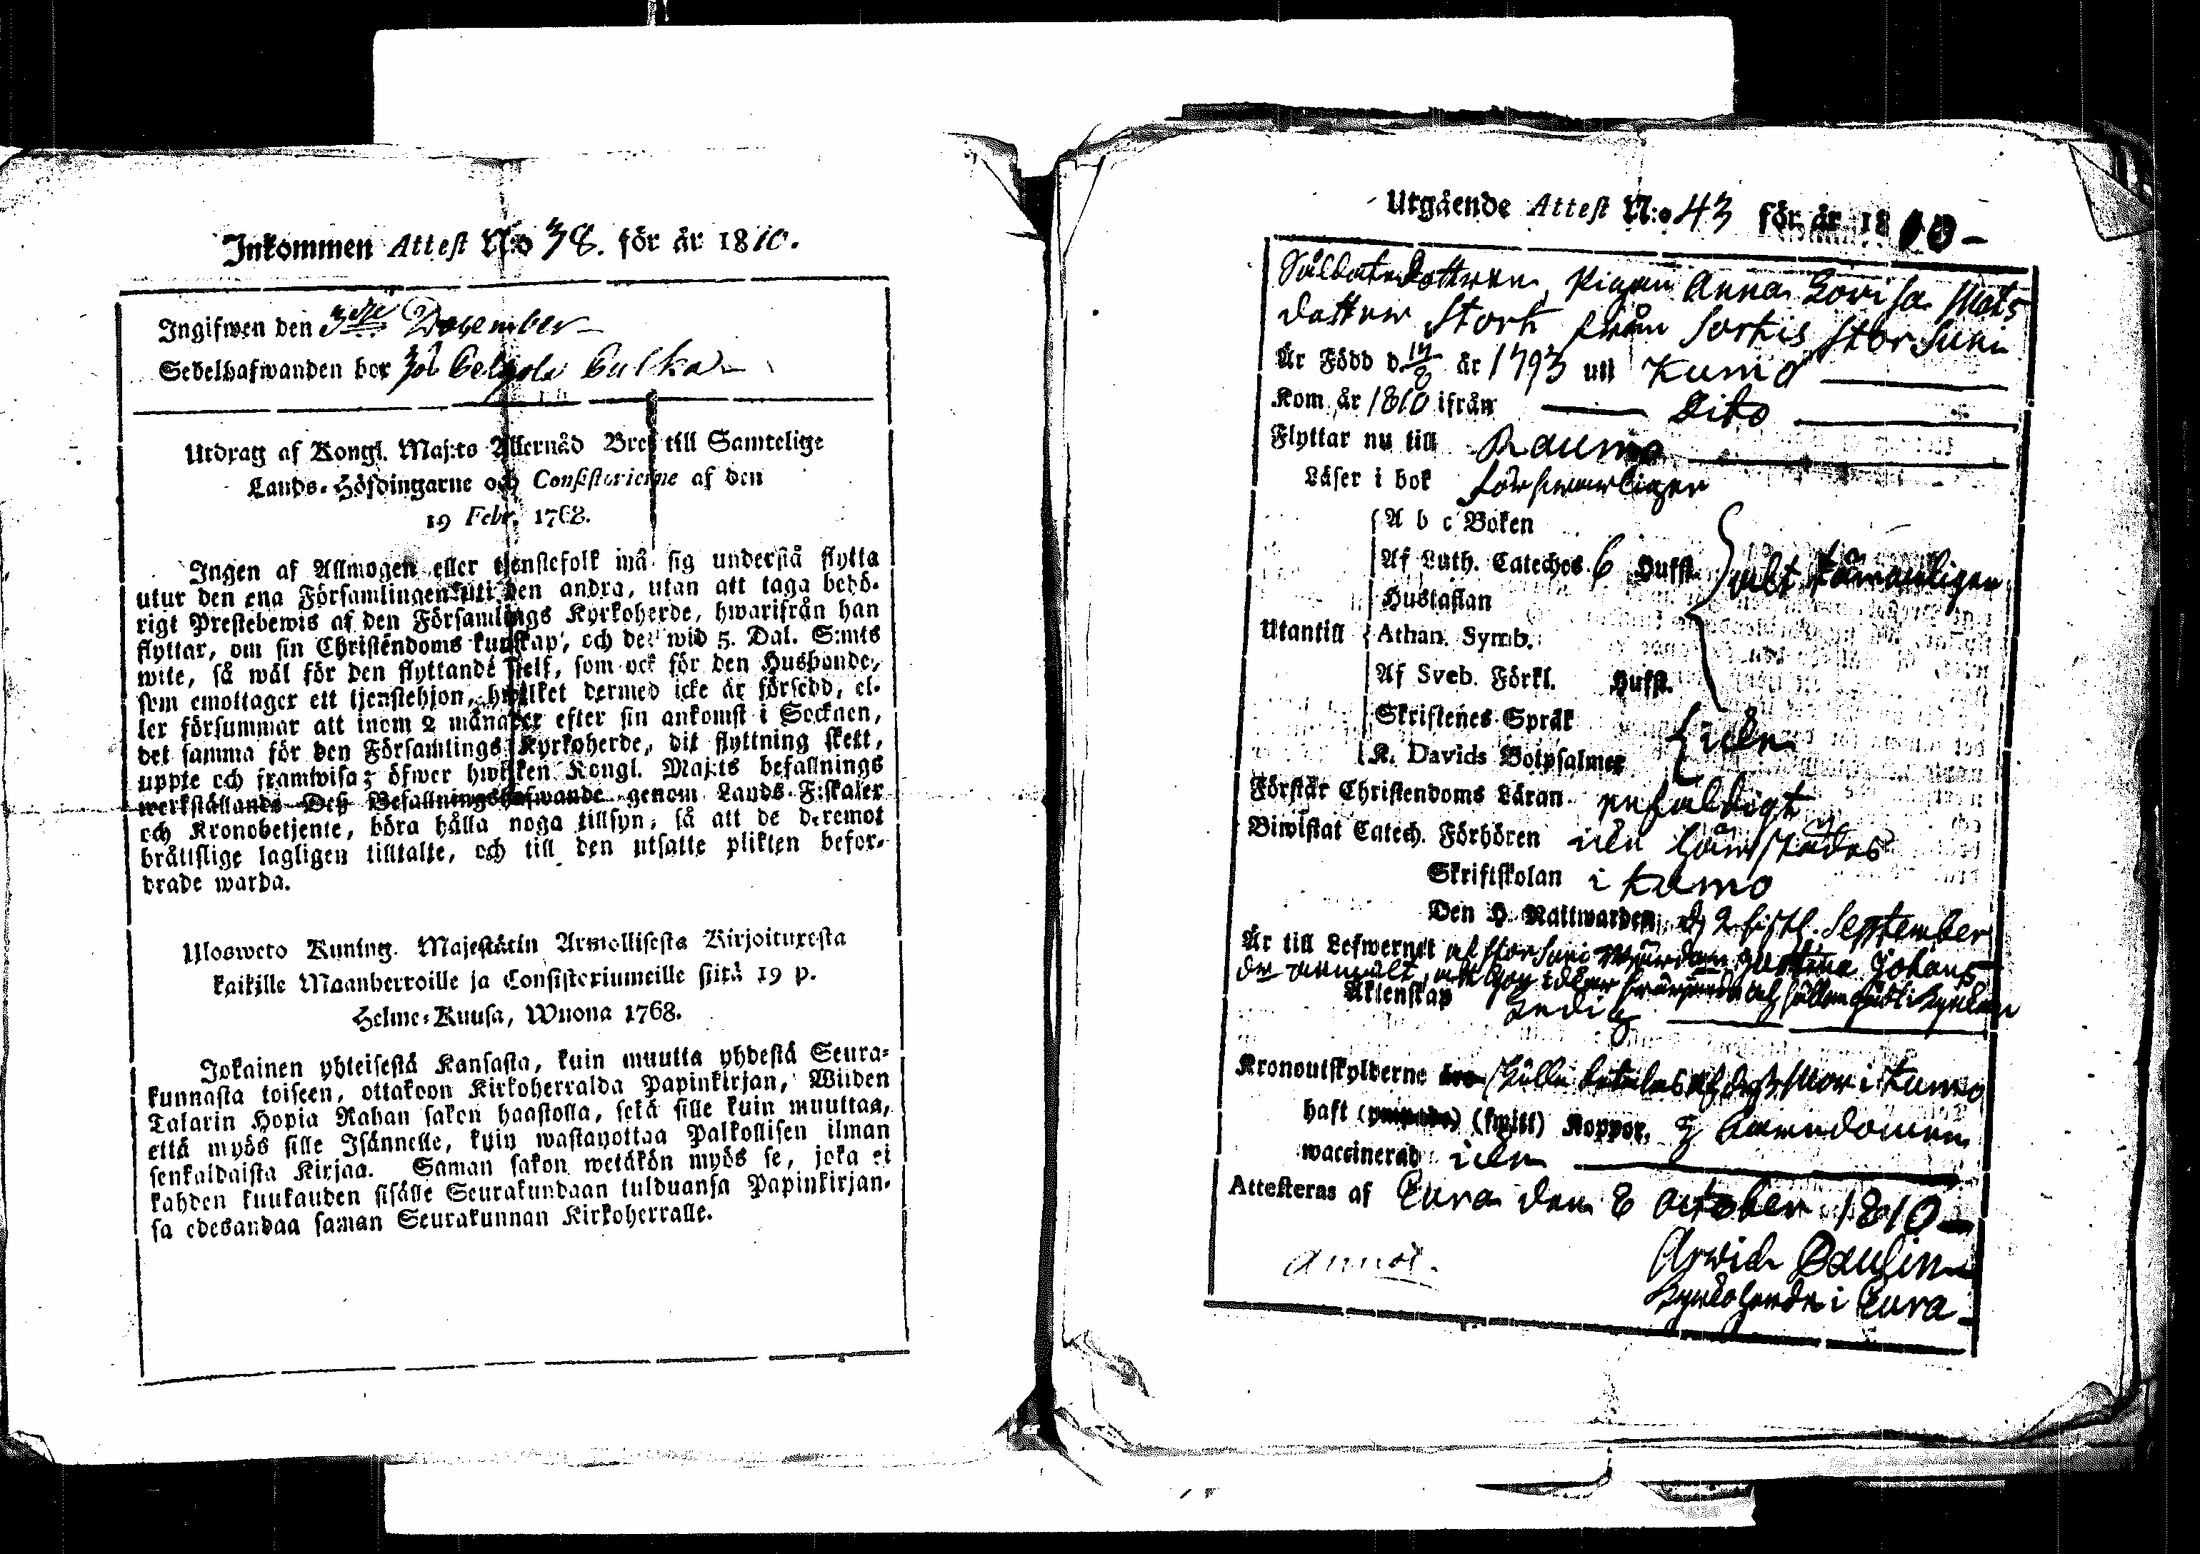 Inkommen Attest N:o 38. för år 1810.
Ingifwen den 3die December
Sedelhafwanden bor
Utdrag af Kongl. Maj:ts Allernåd Bref till Samtelige
Lands-Höfdingarne och Consistorierne af den
19 Febr. 1768.
Ingen af Allmogen eller tjenstefolk må sig understå flytta
utur den ena Församlingen uti den andra, utan att taga behö-
rigt Prestebewis af den Församlings Kyrkoherde, hwarifrån han
flyttar, om sin Christendoms kunskap, och det wid 5. Dal. S:mts
wite, så wäl för den flyttande sielf, som ock för den Husbonde,
som emottager ett tjenstehjon, hwilket dermed icke är försedd, el-
ler försummar att inom 2 månader efter sin ankomst i Socknen,
det samma för den Församlings Kyrkoherde, dit flyttning skett,
uppte och framwisa; öfwer hwilken Kongl. Maj:ts befallnings
werkställande Deß Befallningshafwande genom Lands-Fiskaler
och Kronobetjente, böra hålla noga tillsyn, så att de deremot
bråttslige lagligen tilltalte, och till den utsatte plikten befor-
drade warda.
Ulosweto Kuning. Majestätin Armollisesta Kirjoituxesta
kaikille Maanherroille ja Consistoriumeille siitä 19 p.
Helme-Kuusa, Wuona 1768.
Jokainen yhteisestä Kansasta, kuin muutta yhdestä Seura-
kunnasta toiseen, ottakoon Kirkoherralda Papinkirjan, Wiiden
Talarin Hopia Rahan sakon haastolla, sekä sille kuin muuttaa,
että myös sille Isännelle, kuin wastanottaa Palkollisen ilman
senkaldaista Kirjaa. Saman sakon wetäkön myös se, joka ei
kahden kuukauden sisälle Seurakundaan tulduansa Papinkirjan-
sa edesandaa saman Seurakunnan Kirkoherralle.
Utgående Attest N:o 43 för år 1810-
Soldatedottren, Pigan Anna Lovisa Mats
dotter Stork från Sorkis Storsuni
Är Född d. 17/8 år 1793 uti Kumo
Kom år 1810 ifrån Dito
Flyttar nu till Raumo
Läser i bok försvarligen
A b c Boken
Af Luth. Cateches 6 Hufst. allt
Hustaflan
Utantill Athan. Symb.
Af Sveb. Förkl. Hufst.
Skriftenes Språk
K. Davids Botpsalmer
Förstår Christendoms Läran enfaldigt
Biwistat Catech. Förhören härstädes
Skriftskolan i Kumo
Den H. Nattwarden d. 2 September
Är till Lefwernet af Storsuni Johans
Äktenskap Ledig
Kronoutskylderne Mor i Kumo
haft (kpitt) Koppor, i barndomen
waccinerad
Attesteras af Eura den 8 October 1810-
Arwid Paulin
Kyrkoherde i Eura